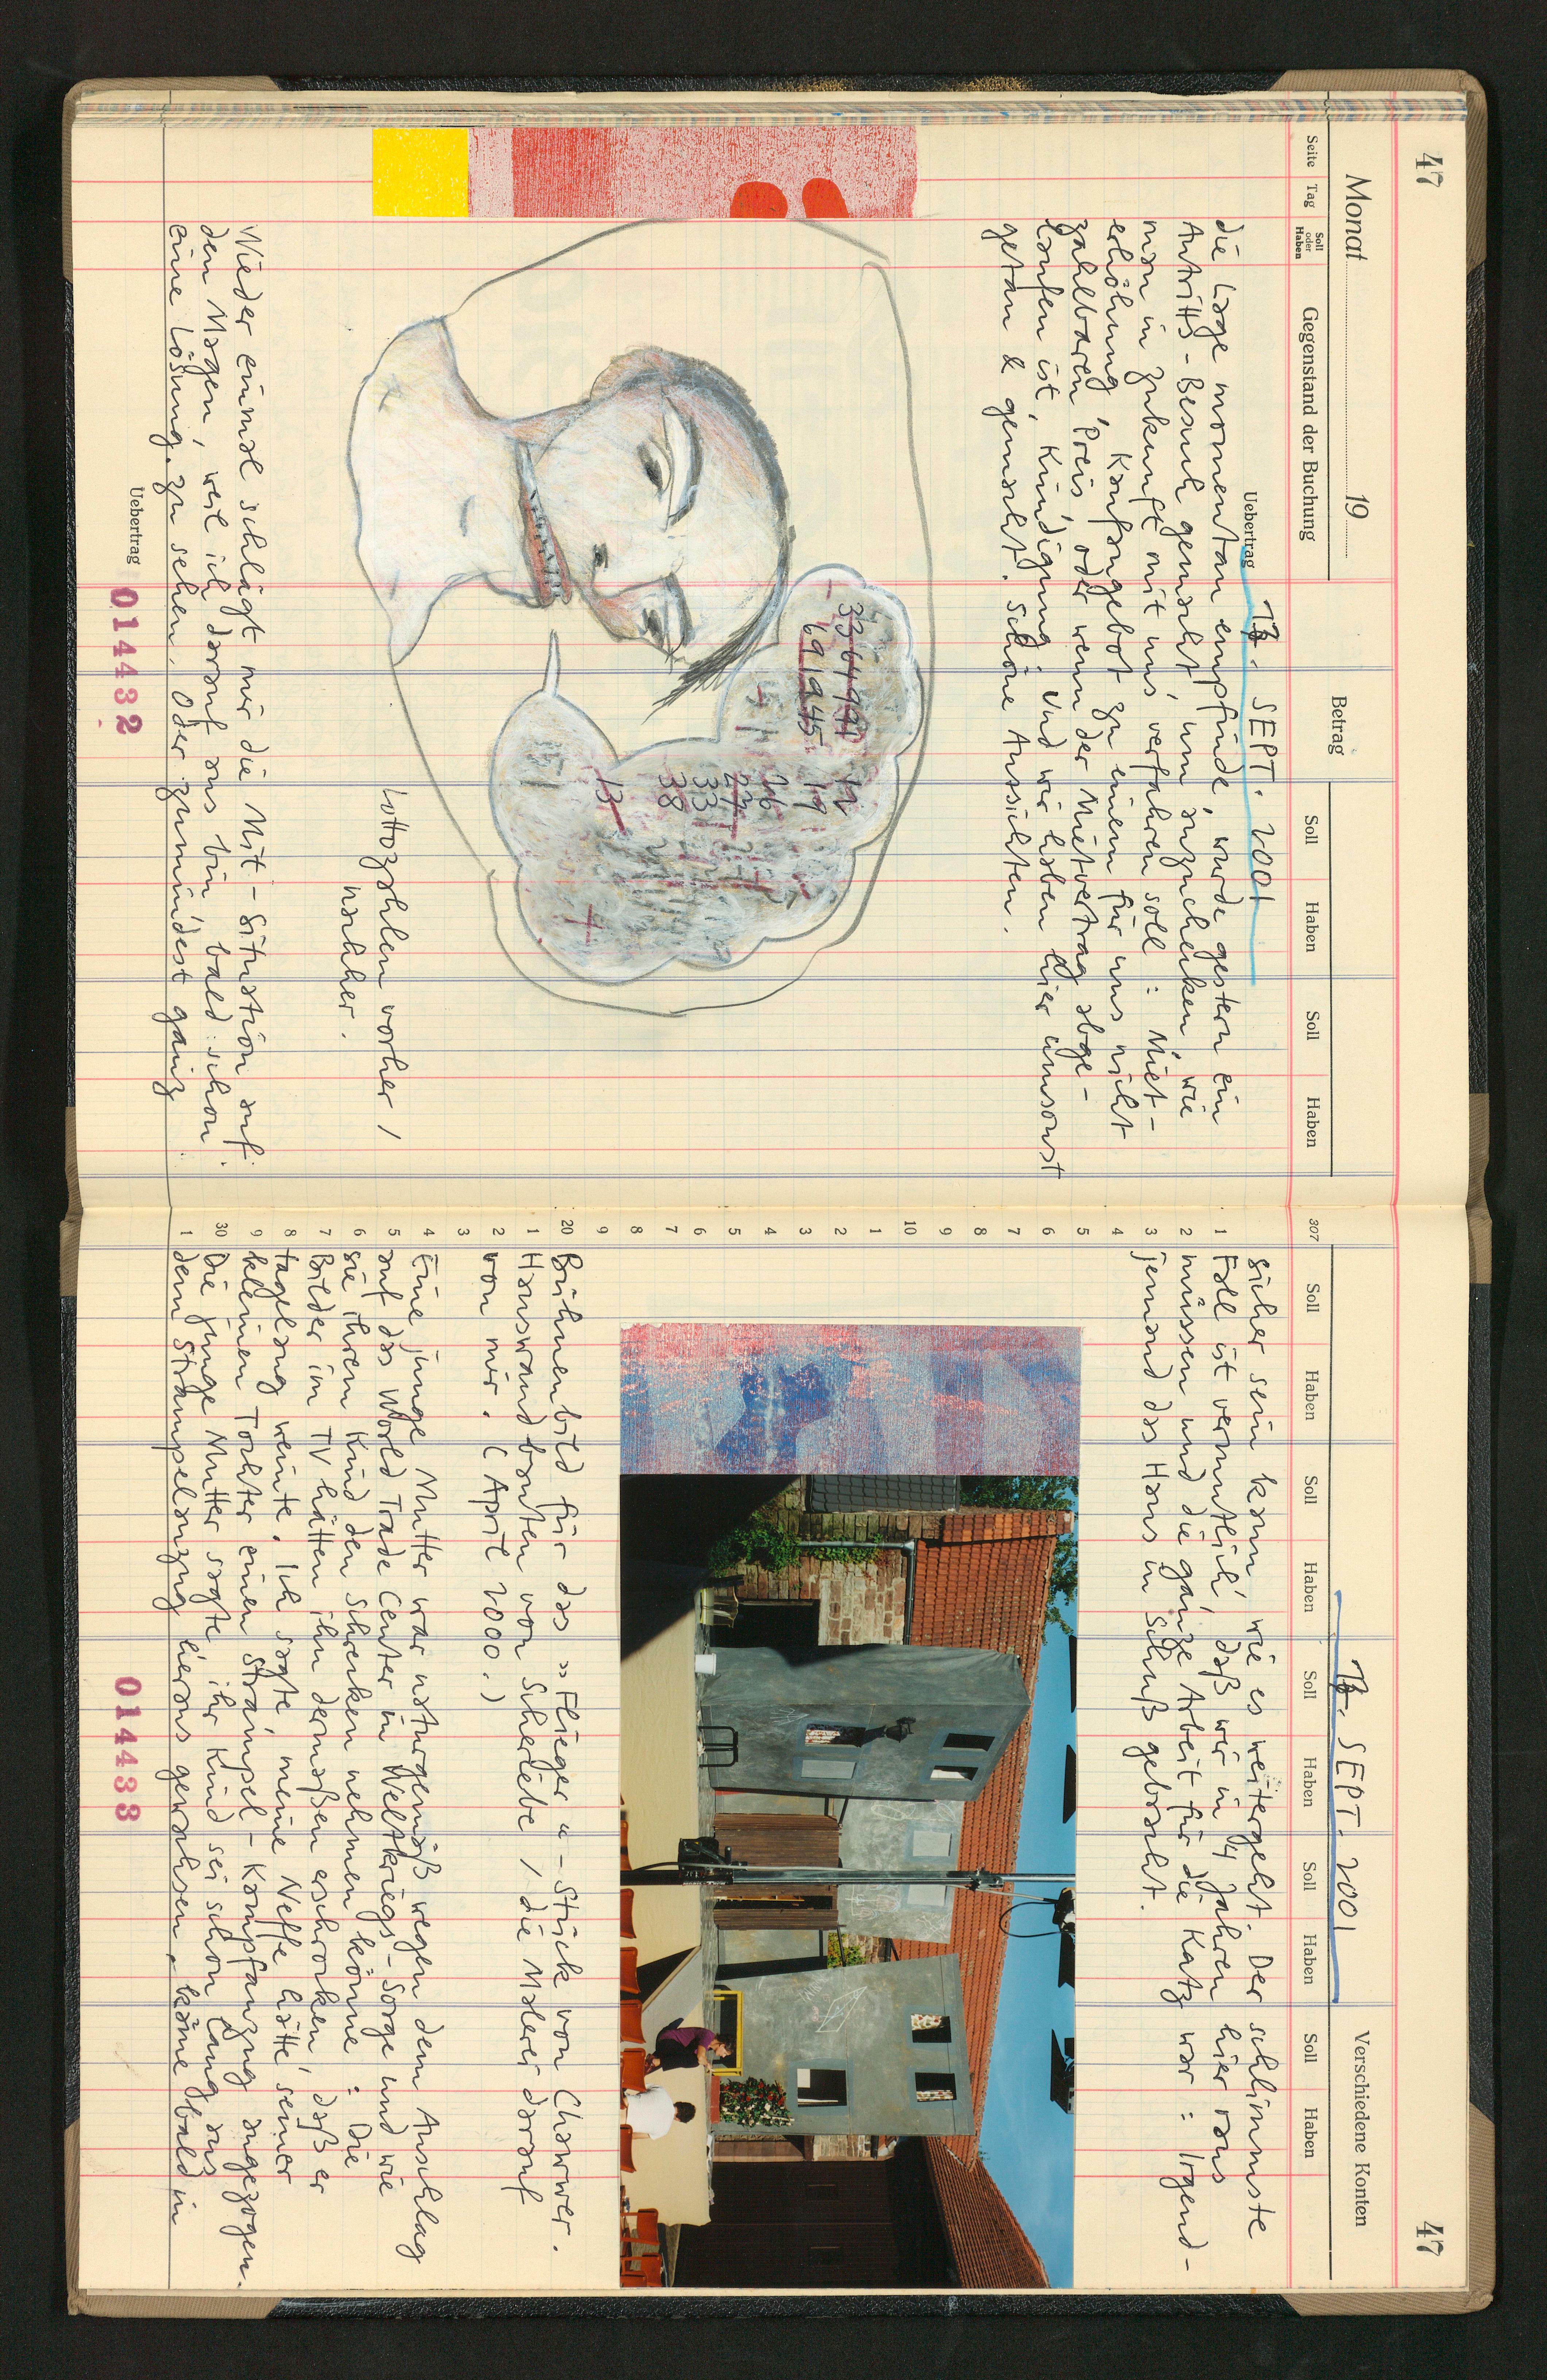 47
Monat 19
Seite
Tag
Soll
oder
Haben
Gegenstand der Buchung
Betrag
Soll
Haben
Soll
Haben
Uebertrag
13. SEPT. 2001
die Lage momentan empfinde, wurde gestern ein
Antritts-Besuch gemacht, um anzuchecken, wie
man in Zukunft mit uns verfahren soll: Miet-
erhöhung, Kaufangebot zu einem für uns nicht
zahlbaren Preis, oder wenn der Mietvertrag abge-
laufen ist, Kündigung. Und wir haben hier umsonst
getan & gemacht. Schöne Aussichten.
3364991
691945
12
19
26
27
33
38
13
15
Lottozahlen vorher /
nachher.
Wieder einmal schlägt mir die Mit-Situation auf
den Magen, weil ich darauf aus bin, bald schon
eine Lösung zu sehen. Oder zumindest ganz
Uebertrag
014432
47
13. SEPT. 2001
Verschiedene Konten
307
Soll
Haben
Soll
Haben
Soll
Haben
Soll
Haben
Soll
Haben
sicher sein kann, wie es weitergeht. Der schlimmste
1 Fall ist vermutlich, daß wir in 4 Jahren hier raus
2 müssen und die ganze Arbeit für die Katz war: Irgend-
3 jemand das Haus in Schuß gebracht.
4
5
6
7
8
9
10
1
2
3
4
5
6
7
8
9
20 Bühnenbild für das »Flieger«-Stück von Chawwer.
1 Hauswand bauten von Scheriebe / die Malerei darauf
2 von mir. (April 2000.)
3
4 Eine junge Mutter war naturgemäß wegen dem Anschlag
5 auf das World Trade Center in Weltkriegs-Sorge und wie
6 sie ihrem Kind den Schrecken nehmen könne: Die
7 Bilder im TV hätten ihn dermaßen erschrocken, daß er
8 tagelang weinte. Ich sagte, meine Neffe hätte seiner
9 kleinen Tochter einen Strampel-Kampfanzug angezogen.
30 Die junge Mutter sagte, ihr Kind sei schon lang aus
1 dem Strampelanzug herausgewachsen, käme bald in
014433